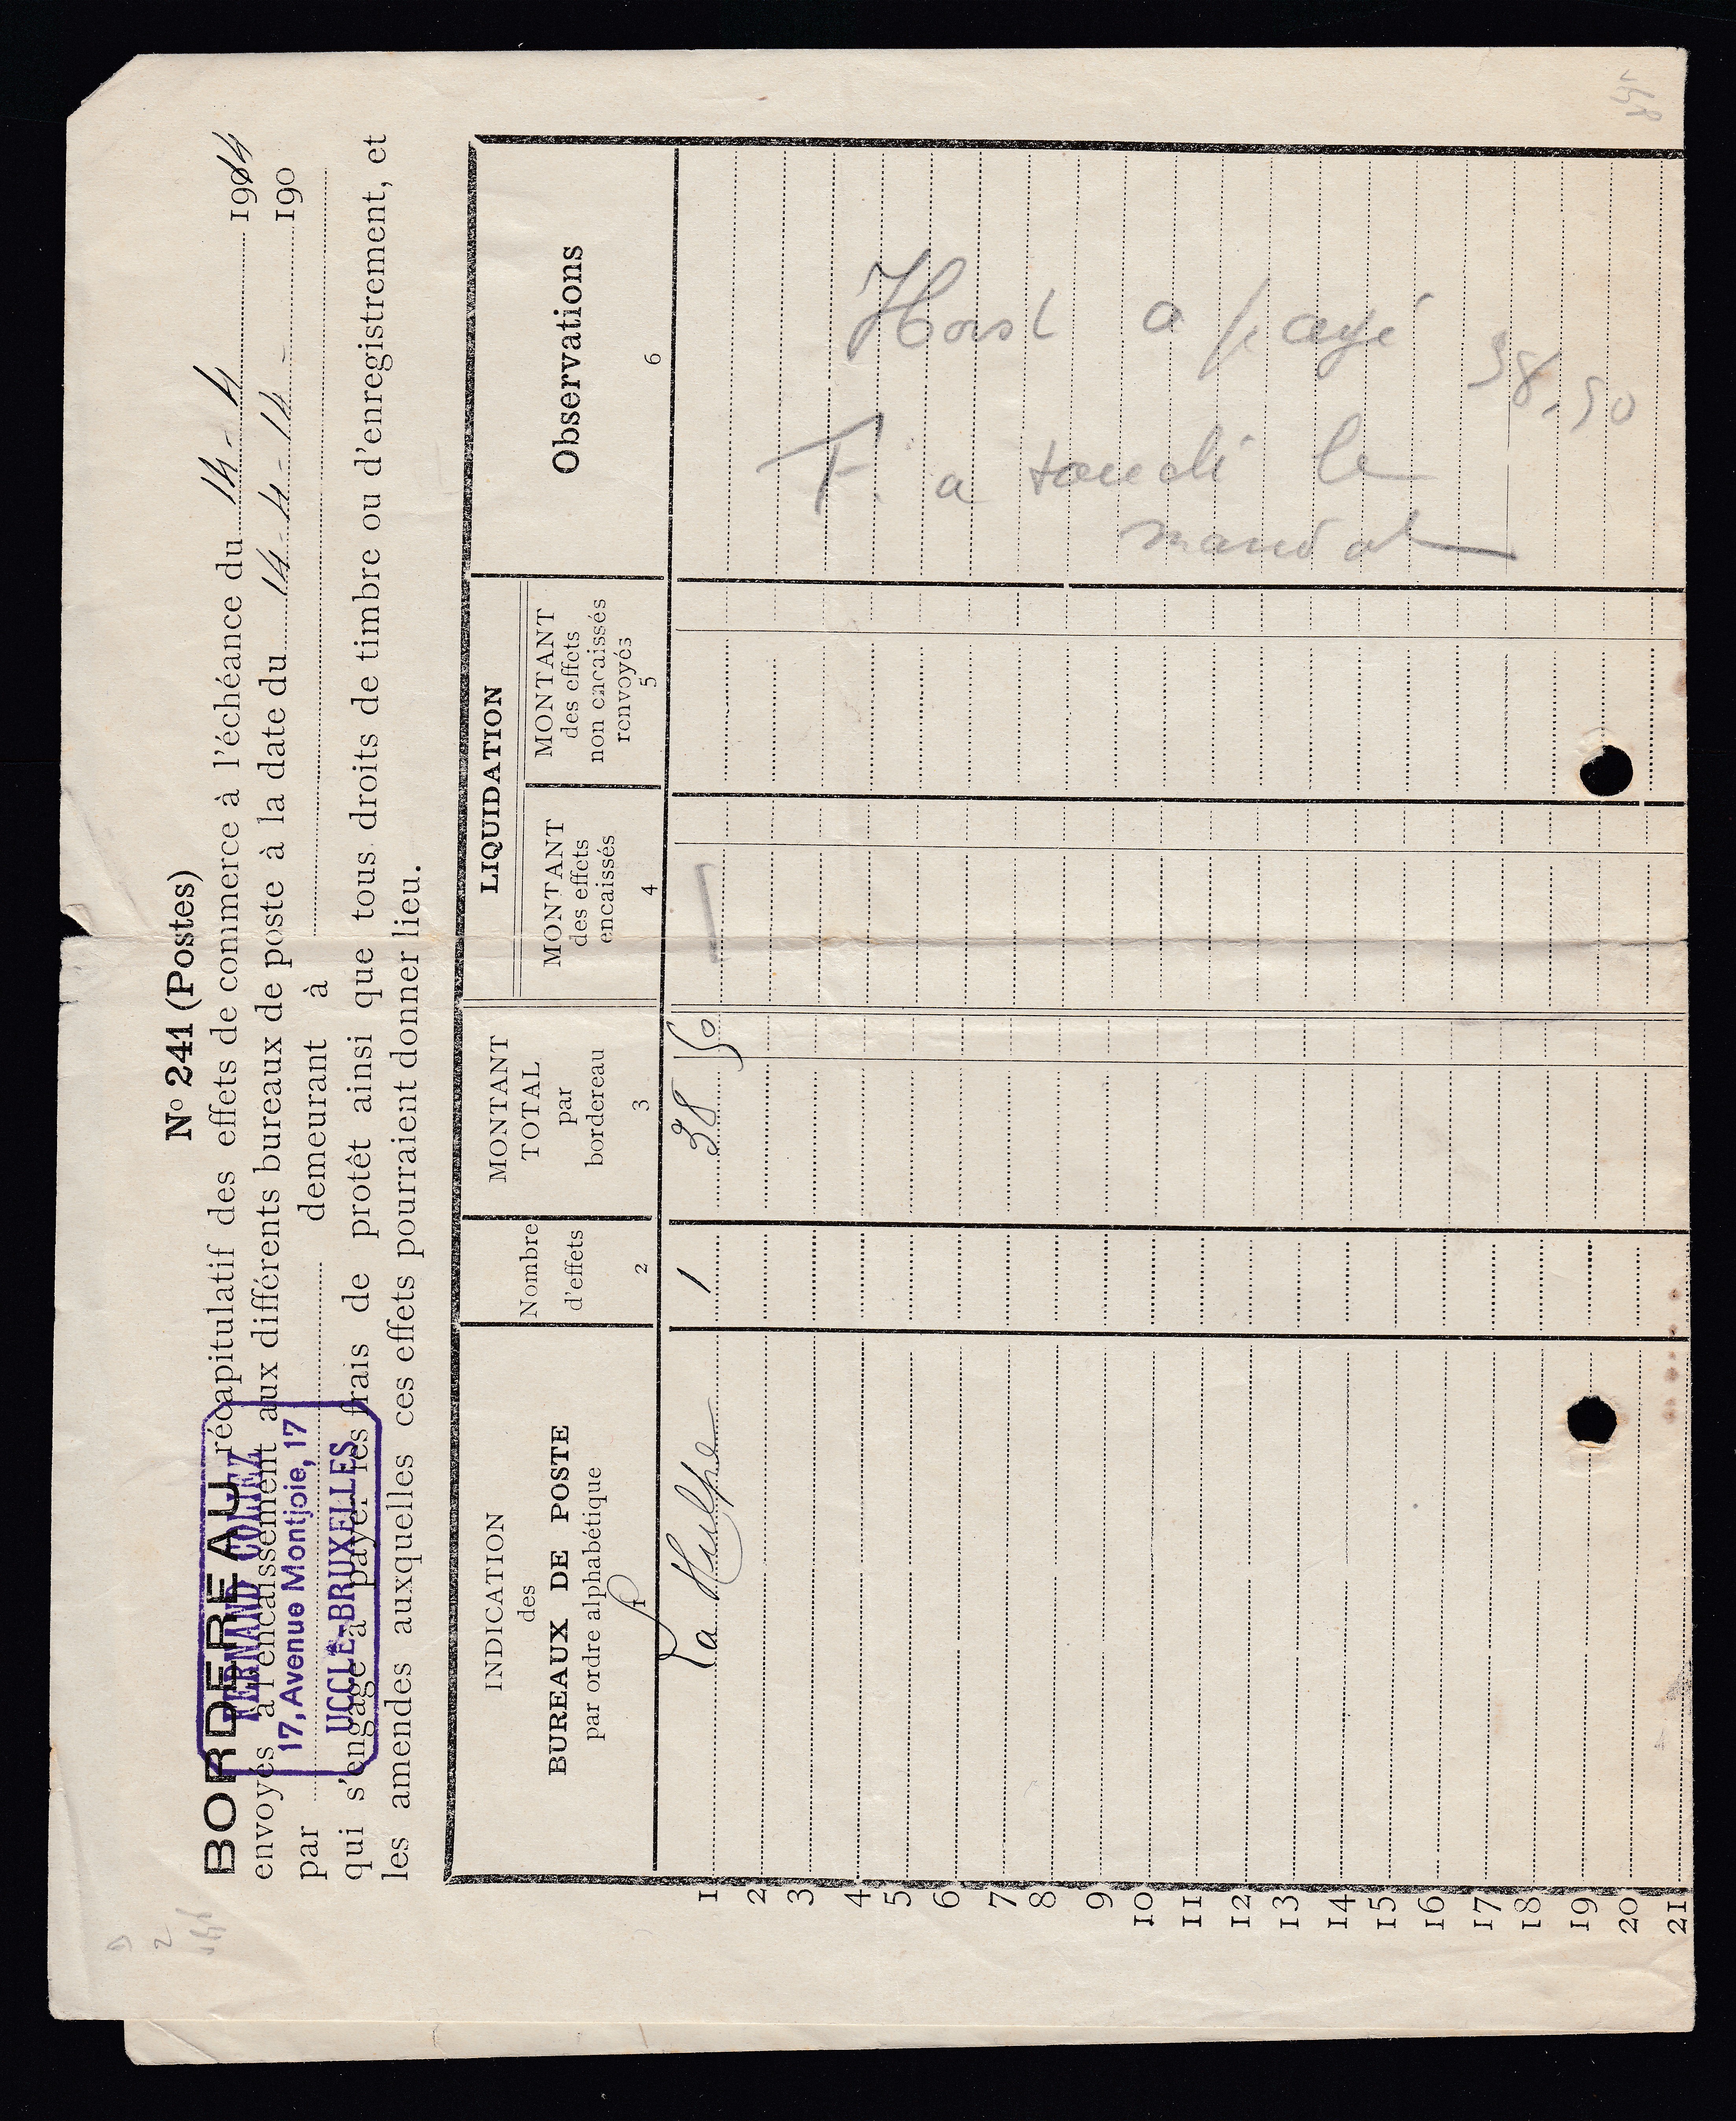 N° 241 (Postes)
BORDEREAU récapitulatif des effets de commerce à l'échéance du 14 - 4 1914
envoyés à l'encaissement aux différents bureaux de poste à la date du 14 - 4 - 14 - 190
par demeurant à
qui s'engage à payer les frais de protêt ainsi que tous droits de timbre ou d'enregistrement, et
les amendes auxquelles ces effets pourraient donner lieu.
FERNAND COLEZ
17, Avenue Montjoie, 17
UCCLE-BRUXELLES
INDICATION
des
BUREAUX DE POSTE
par ordre alphabétique
1
Nombre
d'effets
2
MONTANT
TOTAL
par
bordereau
3
LIQUIDATION
MONTANT
des effets
encaissés
4
MONTANT
des effets
non encaissés
renvoyés
5
Observations
6
1 La Hulpe 1 38 50
2
3
4
5
6
7
8
9
10
11
12
13
14
15
16
17
18
19
20
21
Horst a payé
38.50
F. a touché le
mandat